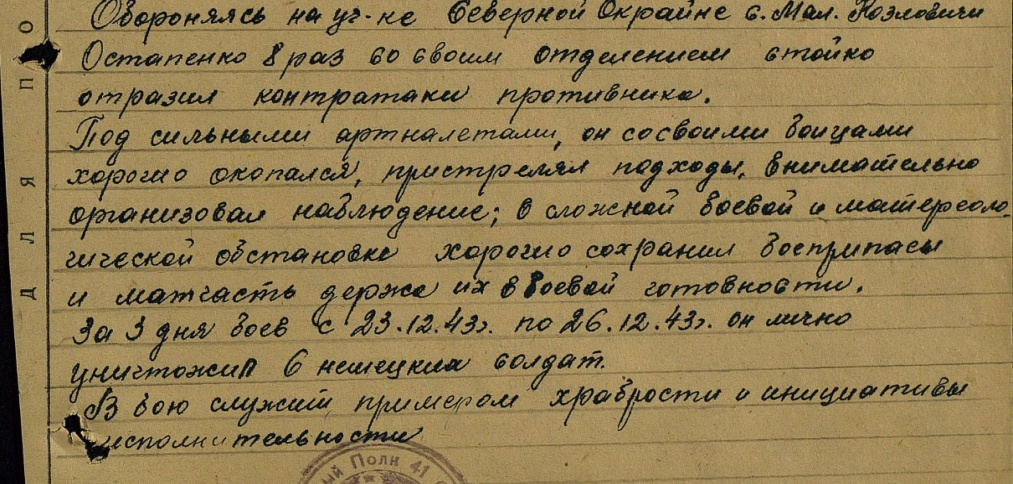 Обороняясь на уч-ке Северной Окрайне с. Мал. Козловичи
Остапенко 8 раз со своим отделением стойко
отразил контратаки противника.
Под сильными артналетами, он со своими бойцами
хорошо окопался, пристрелял подходы, внимательно
организовал наблюдение; в сложной боевой и матереоло-
гической обстановке хорошо сохранил боеприпасы
и матчасть держа их в боевой готовности.
За 3 дня боев с 23.12.43г. по 26.12.43г. он лично
уничтожил 6 немецких солдат.
В бою служит примером храбрости и инициативы
исполнительности
ый Полк 41
ДЛЯ ПО